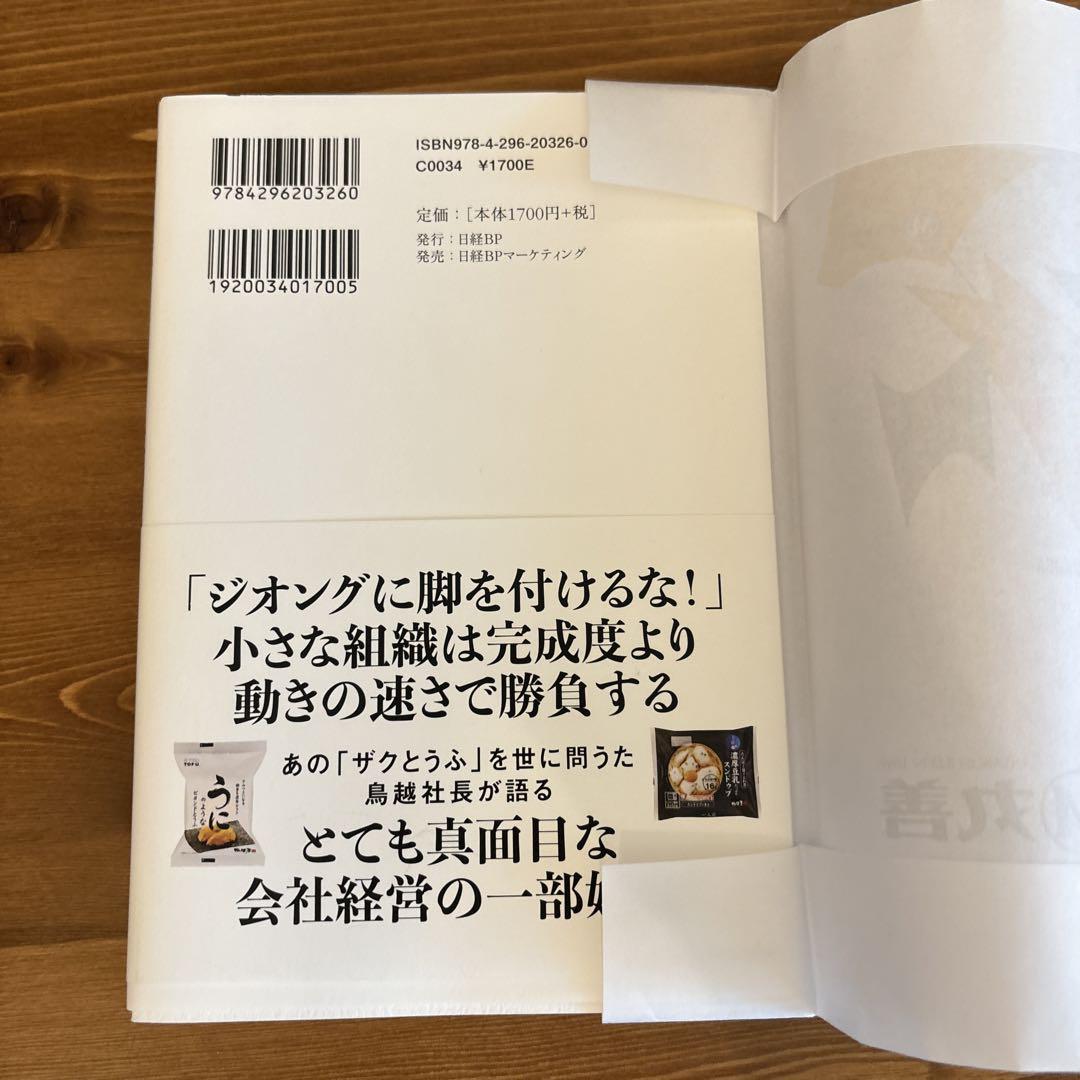 ISBN978-4-296-20326-0
C0034 ¥1700E
9784296203260
定価：[本体1700円+税]
発行：日経BP
発売：日経BPマーケティング
1920034017005
「ジオングに脚を付けるな！」
小さな組織は完成度より
動きの速さで勝負する
あの「ザクとうふ」を世に問うた
鳥越社長が語る
とても真面目な
会社経営の一部
TOFU
うに
のような
ビヨンドとうふ
濃厚豆乳
スンドゥブ
16